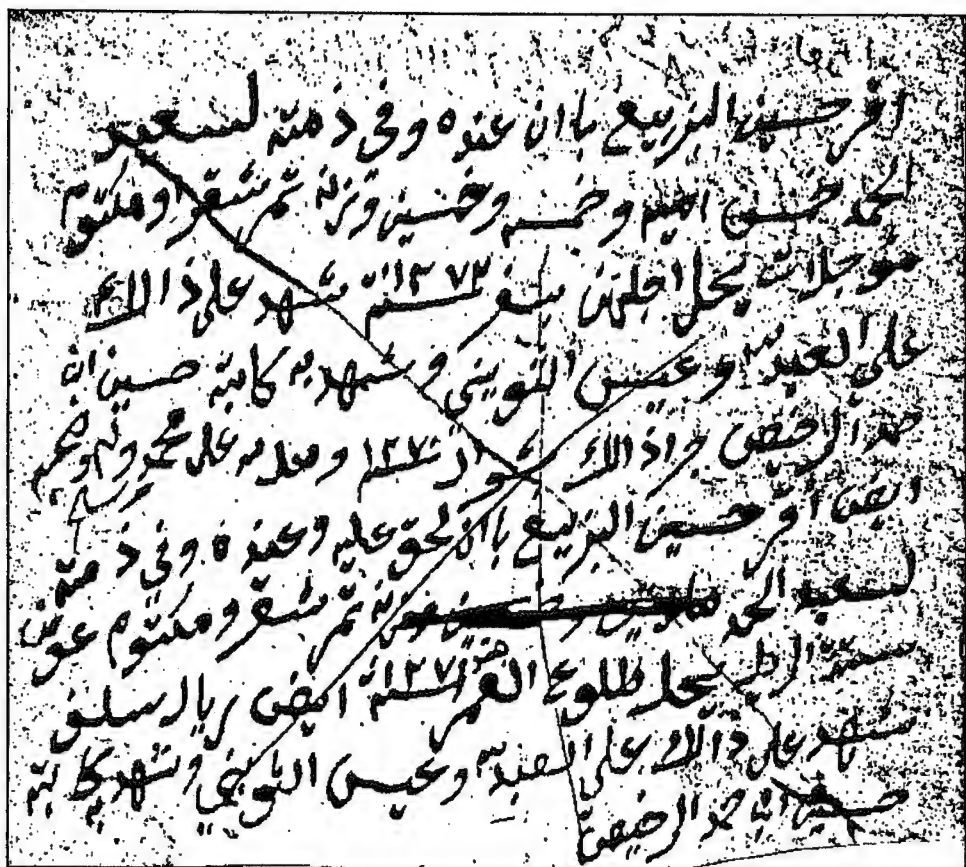 اقر حسين البزيع باان عنده وفي ذمته لسعيد
الحمد خمسين اميه وخمسه وخمسين وزنه تمر شقرا ومكتوم
مؤجلات يحل اجلهن سنة ١٢٧٢ شهد على ذالك
على العبد وعيسى الثويني وشهد به كاتبه حسين ابن
حمد الرخيص جراذالك سنة ١٢٧٠ وصلا الله على محمد واله وصحبه
وسلم
ايضن اقر حسين البزيع باان لحق عليه وعنده وفي ذمته
لسعيد الحمد وزنه تمر شقر ومكتوم عوض
ستة اريل يحل طلوع سنة ١٢٧١ ايضن ريال سلف
شهد على ذالك على العبد وعيسى الثويني وشهد به كاتبه
حسين ابن حمد الرخيص